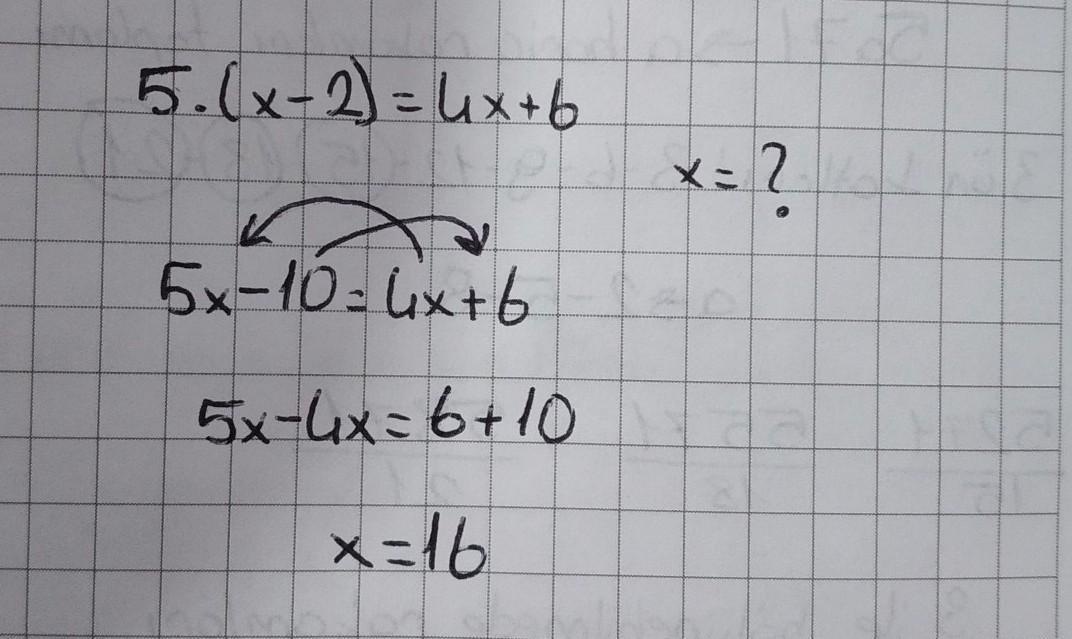 5.(x-2)=4x+6
x=?
5x-10=4x+6
5x-4x=6+10
x=16